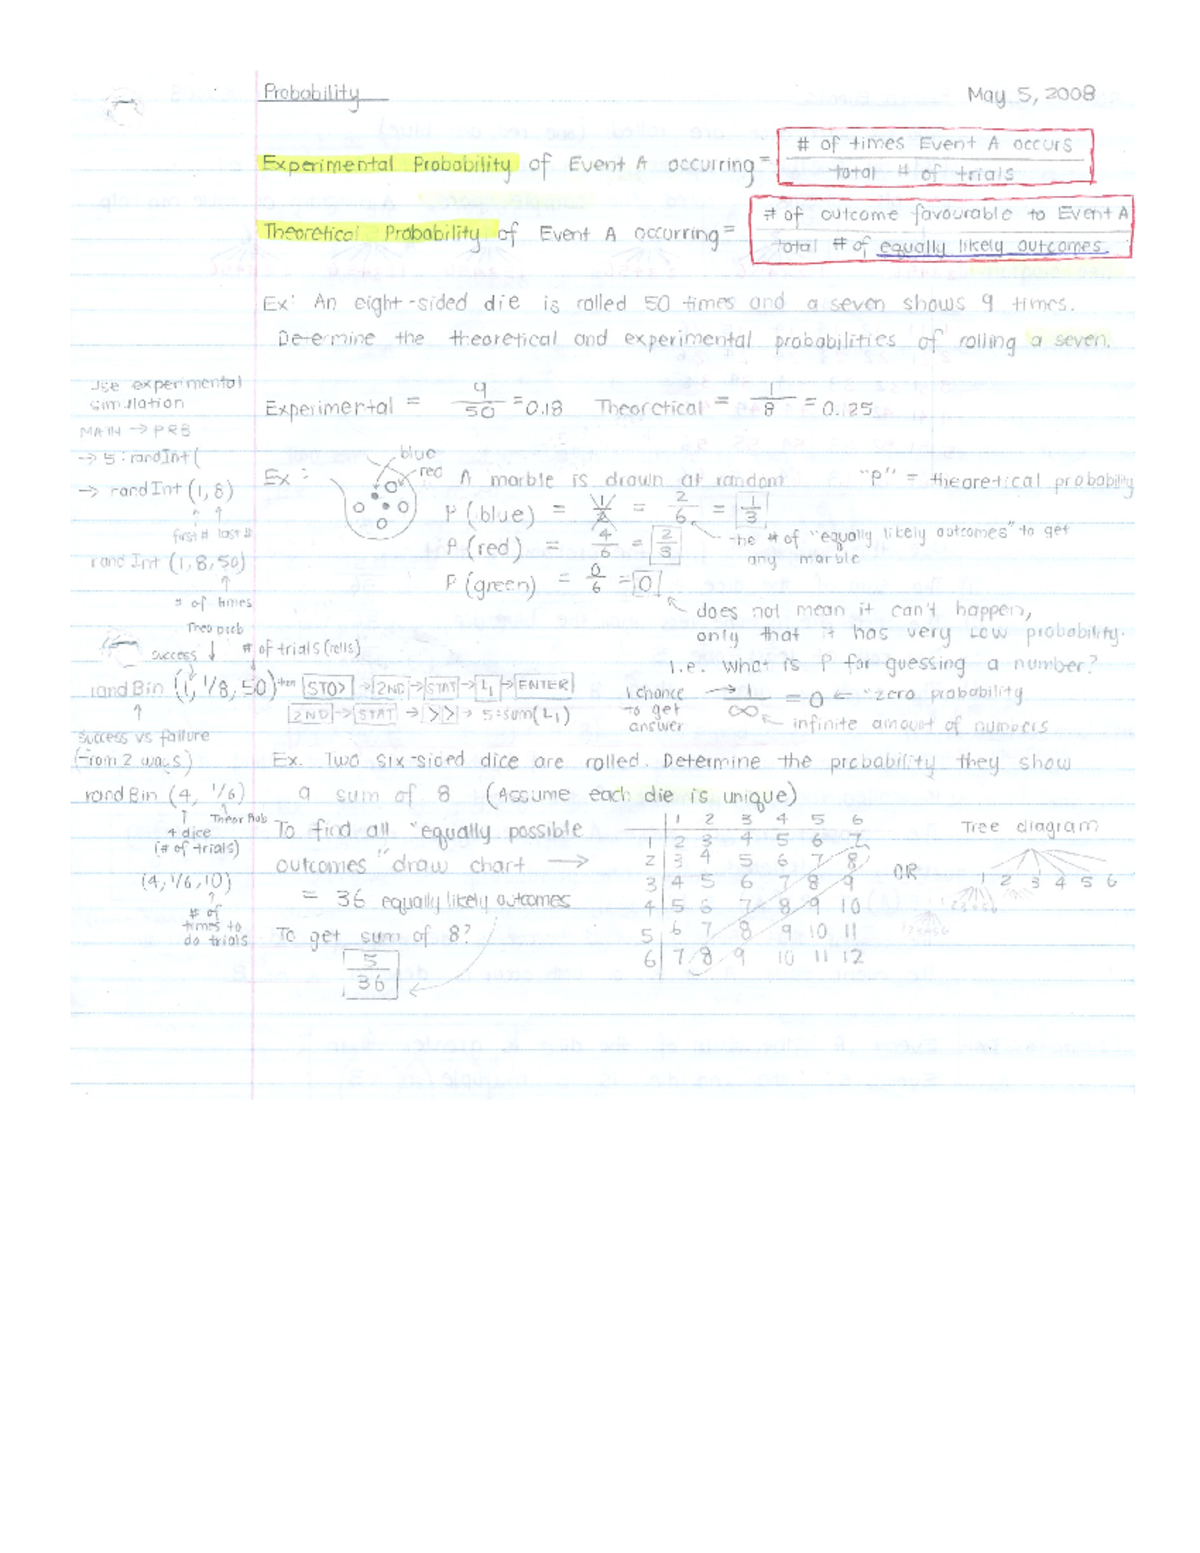 Probability May 5, 2008
Experimental Probability of Event A occurring = # of times Event A occurs
total # of trials
Theoretical Probability of Event A occurring = # of outcome favourable to Event A
total # of equally likely outcomes.
Ex: An eight-sided die is rolled 50 times and a seven shows 9 times.
Determine the theoretical and experimental probabilities of rolling a seven.
Use experimental
simulation
MAIN → PRB
→ 5: randInt(
→ randInt (1, 8)
first # last #
rand Int (1, 8, 50)
# of times
Experimental = 9/50 = 0.18 Theoretical = 1/8 = 0.125
Ex: blue
red
A marble is drawn at random "P" = theoretical probability
P (blue) = 1/2 = 2/6 = 1/3
the # of "equally likely outcomes" to get
any marble
P (red) = 4/6 = 2/3
P (green) = 0/6 = 0
does not mean it can't happen,
only that it has very low probability.
i.e. What is P for guessing a number?
1 chance
to get
answer
→ 1/∞ = 0 ← "zero probability
infinite amount of numbers
Theo prob
success ↓ # of trials (rolls)
rand Bin (1, 1/8, 50) then STO> → 2ND → STAT → L1 → ENTER
2ND → STAT → > > → 5:sum(L1)
success vs failure
(from 2 ways)
rand Bin (4, 1/6)
Theor Prob
4 dice
(# of trials)
(4, 1/6, 10)
# of
times to
do trials
Ex. Two six-sided dice are rolled. Determine the probability they show
a sum of 8 (Assume each die is unique)
To find all "equally possible
outcomes" draw chart →
= 36 equally likely outcomes
To get sum of 8?
5
36
1 2 3 4 5 6
1 2 3 4 5 6 7
2 3 4 5 6 7 8
3 4 5 6 7 8 9
4 5 6 7 8 9 10
5 6 7 8 9 10 11
6 7 8 9 10 11 12
OR
Tree diagram
1 2 3 4 5 6
123456
123456